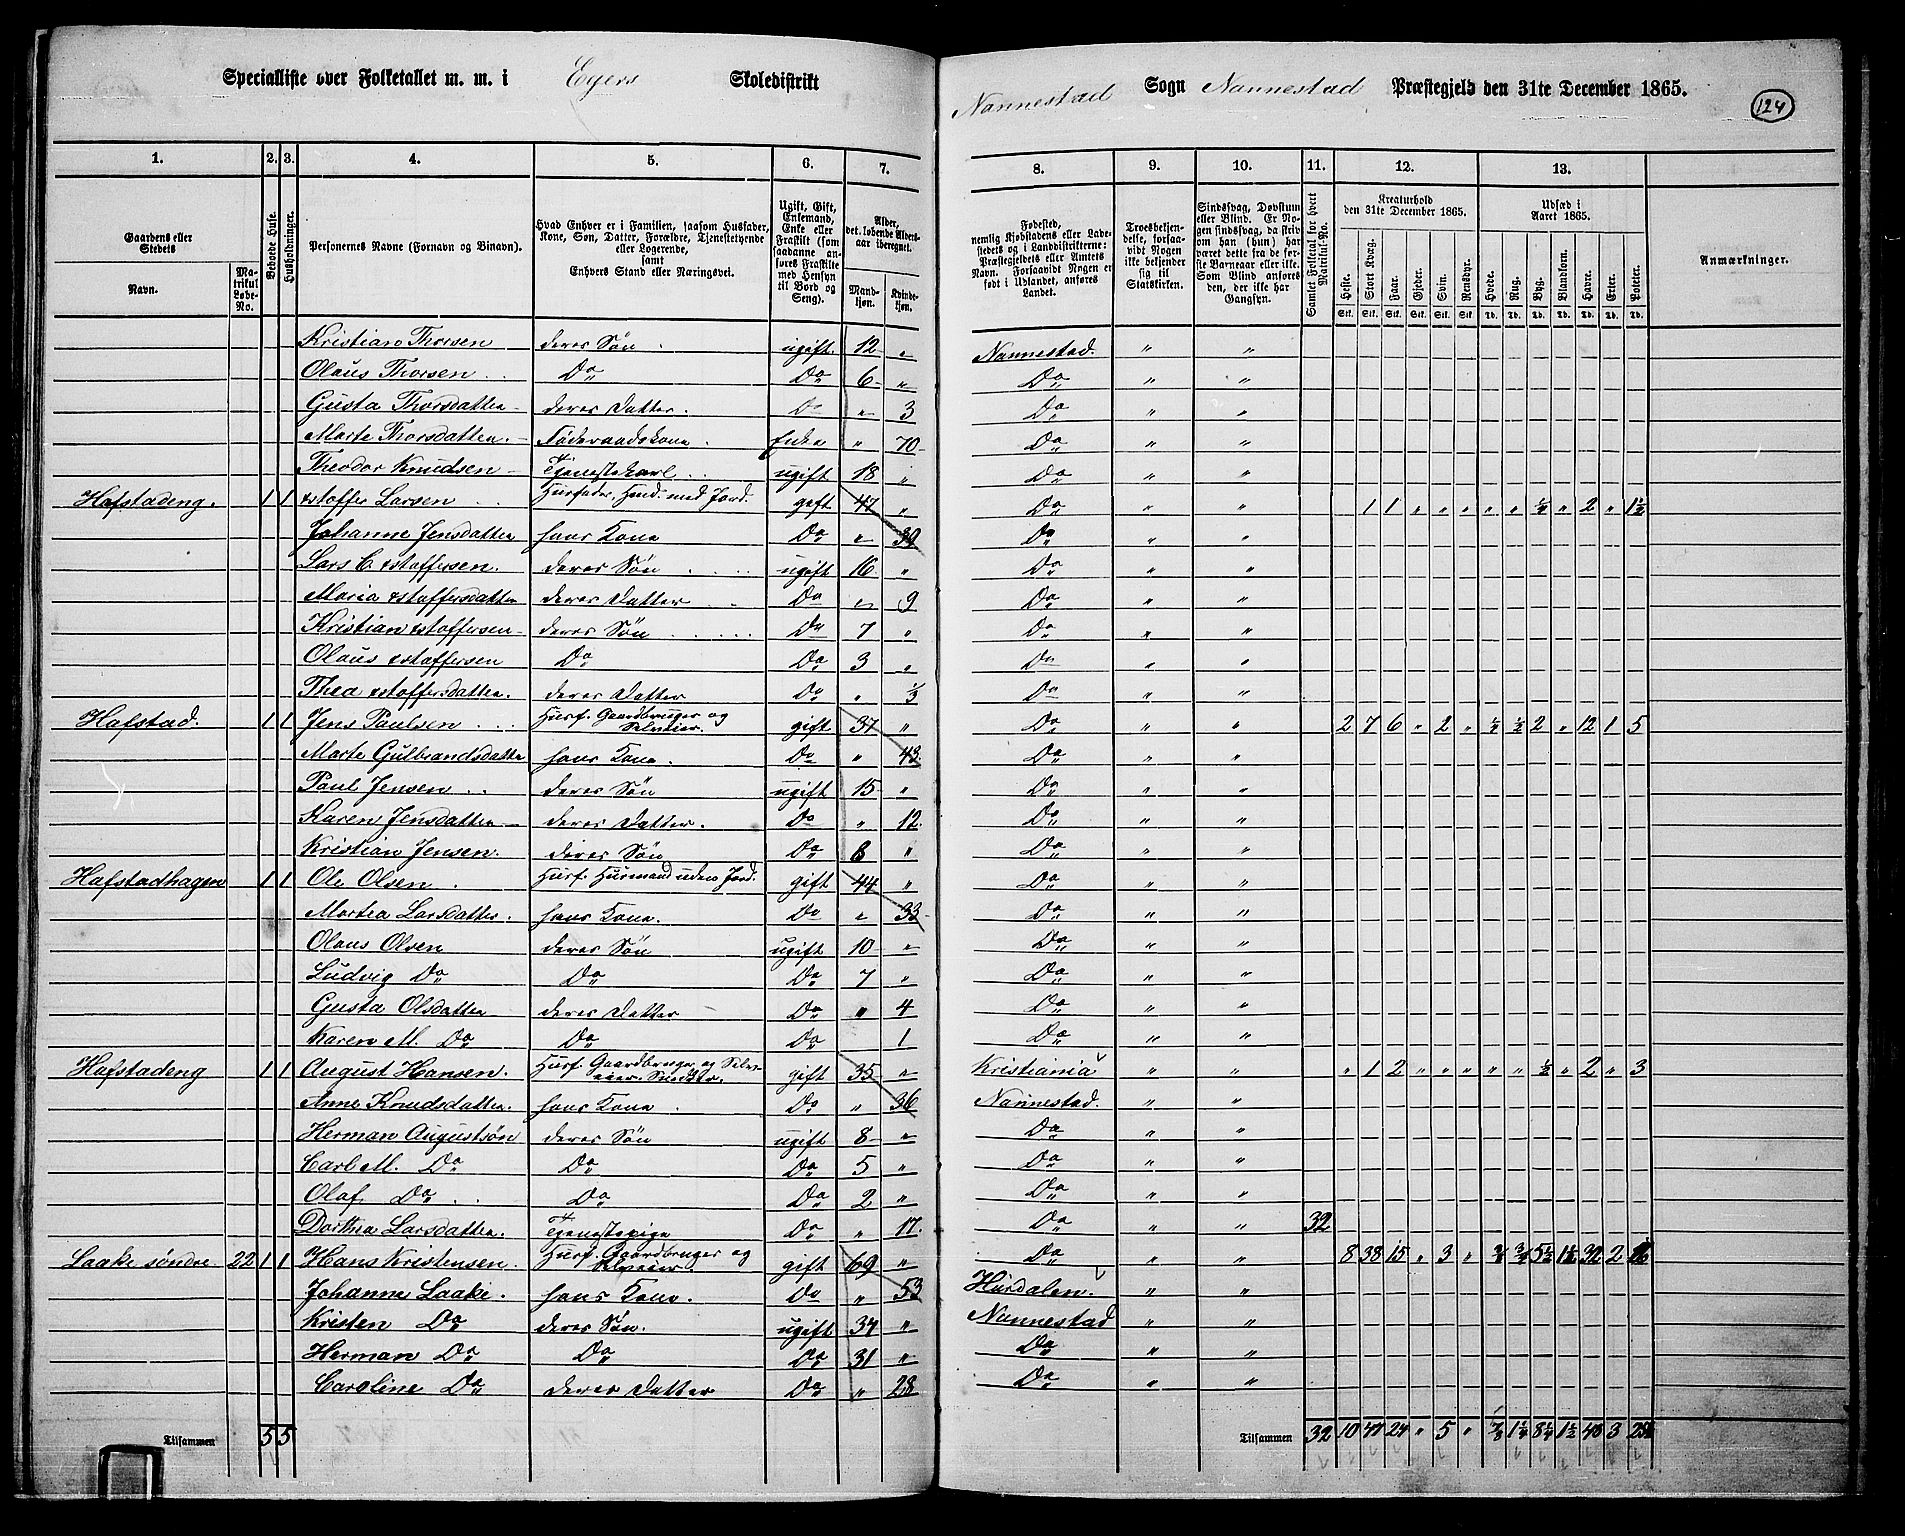 Specialliste over Folketallet m. m. i Eyers Skoledistrikt
Nannestad Sogn Nannestad Præstegjeld den 31te December 1865.
124
1. 2. 3. 4. 5. 6. 7. 8. 9. 10. 11. 12. 13.
Gaardens eller Stedets
Navn. Matrikul Løbe-No.
Beboede Huse.
Husholdninger.
Personernes Navne (Fornavn og Binavn).
Hvad Enhver er i Familien, saasom Husfader, Kone, Søn, Datter, Forældre, Tjenestetyende eller Logerende, samt Enhvers Stand eller Næringsvei.
Ugift, Gift, Enkemand, Enke eller Fraskilt (som saadanne anføres Fraskilte med Hensyn til Bord og Seng).
Alder, det løbende Aldersaar iberegnet.
Mandkjøn. Kvindekjøn.
Fødested, nemlig Kjøbstadens eller Ladestedets og i Landdistrikterne: Præstegjeldets eller Amtets Navn. Forsaavidt Nogen er født i Udlandet, anføres Landet.
Troesbekjendelse, forsaavidt Nogen ikke bekjender sig til Statskirken.
Sindssvag, Døvstum eller Blind. Er Nogen sindssvag, da skriv om han (hun) har været dette fra de første Barneaar eller ikke. Som Blind anføres den, der ikke har Gangsyn.
Samlet Folketal for hvert Matrikul-No.
Kreaturhold den 31te December 1865.
Heste. Stort Kvæg. Faar. Gjeder. Svin. Rensdyr.
Udsæd i Aaret 1865.
Hvede. Rug. Byg. Blandkorn. Havre. Erter. Poteter.
Stk. Stk. Stk. Stk. Stk. Stk. Td. Td. Td. Td. Td. Td. Td.
Anmærkninger.
Kristian Thorsen deres Søn ugift. 12 " Nannestad. " "
Olaus Thorsen Do Do 6 " Do " "
Gusta Thorsdatter deres Datter. Do " 3 Do " "
Marte Thorsdatter. Føderaadskone. Enke " 70 Do " "
Theodor Knudsen Tjenestekarl ugift 18 " Do " "
Hafstadeng. 1 1 xstoffer Larsen Husfader, Husm. med Jord. gift 47 " Do " " 1 1 " " " " " ¼ " 2 " 1½
Johanne Jensdatter hans Kone Do " 39 Do " "
Lars C xstoffersen. deres Søn ugift 16 " Do " "
Maria xstoffersdatter deres Datter Do " 9 Do " "
Kristian xstoffersen deres Søn Do 7 " Do " "
Olaus xstoffersen Do Do 3 " Do " "
Thea xstoffersdatter. deres Datter Do " ⅓ Do " "
Hafstad. 1 1 Jens Paulsen Husf. Gaardbruger og Selveier. gift 37 " Do " " 2 7 6 " 2 " 2 " 12 1 5
Marte Gulbrandsdatter hans Kone. Do " 43. Do " "
Paul Jensen deres Søn ugift 15 " Do " "
Karen Jensdatter deres Datter. Do " 12. Do " "
Kristian Jensen. deres Søn Do 8 " Do " "
Hafstadhagen 1 1 Ole Olsen Husf. Husmand uden Jord. gift 44 " Do " "
Martea Larsdatter. hans Kone. Do " 33 Do " "
Olaus Olsen deres Søn ugift 10 " Do " "
Ludvig Do Do Do 7 " Do " "
Gusta Olsdatter deres Datter Do " 4 Do " "
Karen M. Do Do Do 1 Do " "
Hafstadeng 1 1 August Hansen. Husf. Gaardbruger og Selveier. gift 35 " Kristiania " " " 1 2 " " " " " ½ " 2 " 3
Anne Knudsdatter. hans Kone Do " 36 Nannestad. " "
Herman Augustsøn deres Søn ugift 8 " Do " "
Carl M. Do Do Do 5 " Do " "
Olaf Do Do Do 2 " Do " "
Dorthea Larsdatter. Tjenestepige Do " 17. Do " " 32
Laake søndre 22 1 1 Hans Kristensen. Husf. Gaardbruger og Selveier. gift 69 " Do " " 8 38 15 " 3 " ¾ 5½ 1½ 32 2
Johanne Laake. hans Kone. Do " 53 Hurdalen. " "
Kristen Do deres Søn. ugift 34 " Nannestad " "
Herman Do Do Do 31 " Do " "
Caroline Do deres Datter Do " 28 Do " "
Tilsammen 5 5 Tilsammen 32 10 47 24 " 5 " 1¼ 8¼ 1½ 48 3